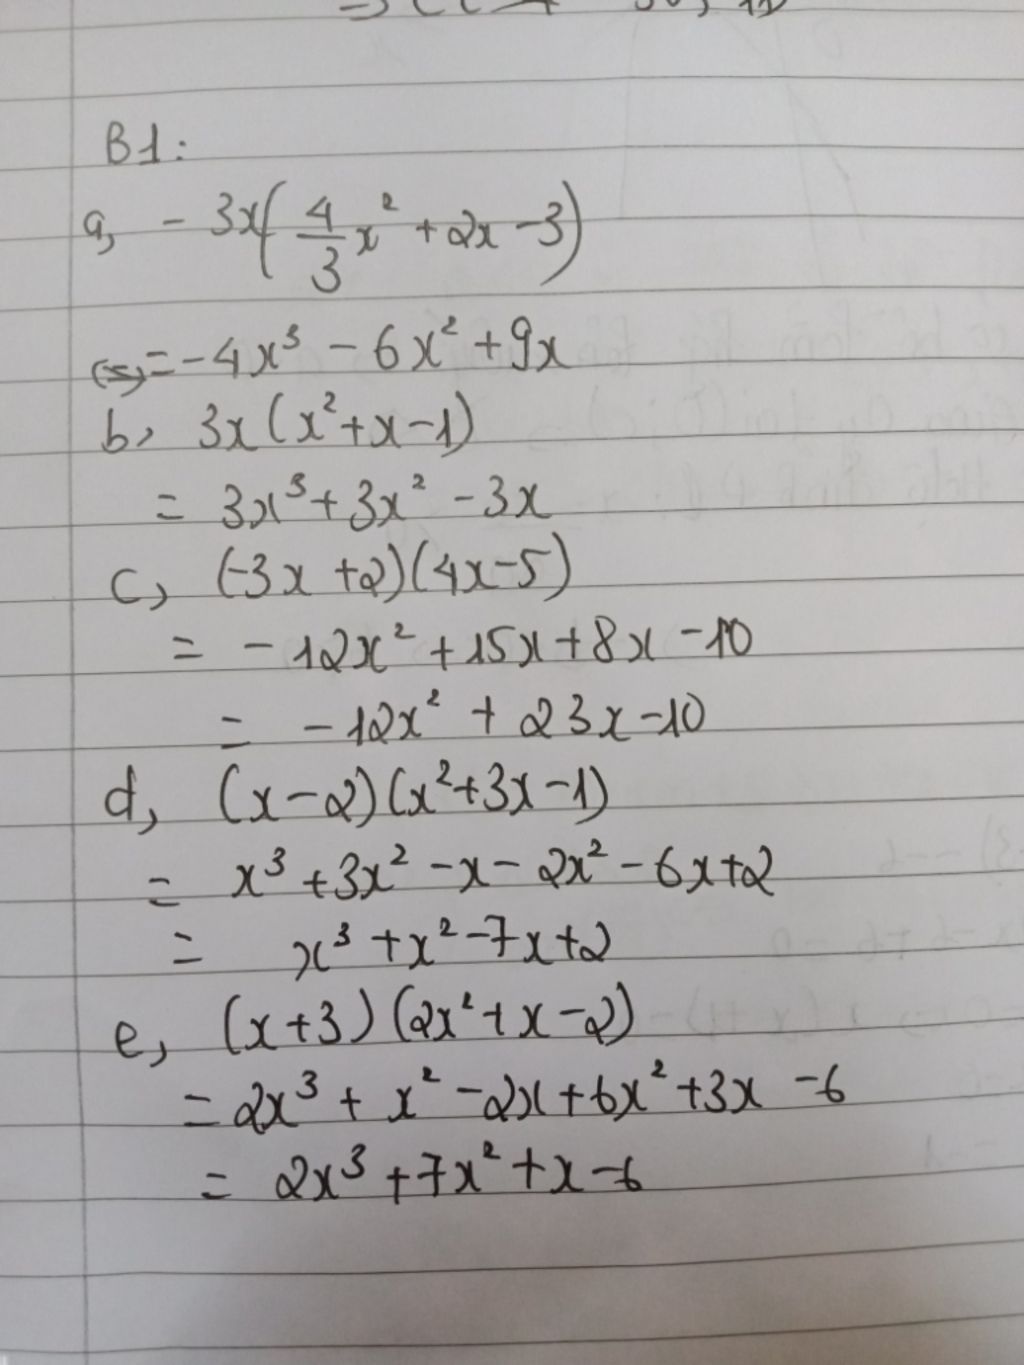 B1:
a, - 3x(4/3 x² + 2x - 3)
= -4x³ - 6x² + 9x
b, 3x(x²+x-1)
= 3x³ + 3x² - 3x
c, (-3x +2)(4x-5)
= -12x² + 15x + 8x - 10
= -12x² + 23x - 10
d, (x-2)(x²+3x-1)
= x³ + 3x² - x - 2x² - 6x + 2
= x³ + x² - 7x + 2
e, (x+3)(2x²+x-2)
= 2x³ + x² - 2x + 6x² + 3x - 6
= 2x³ + 7x² + x - 6